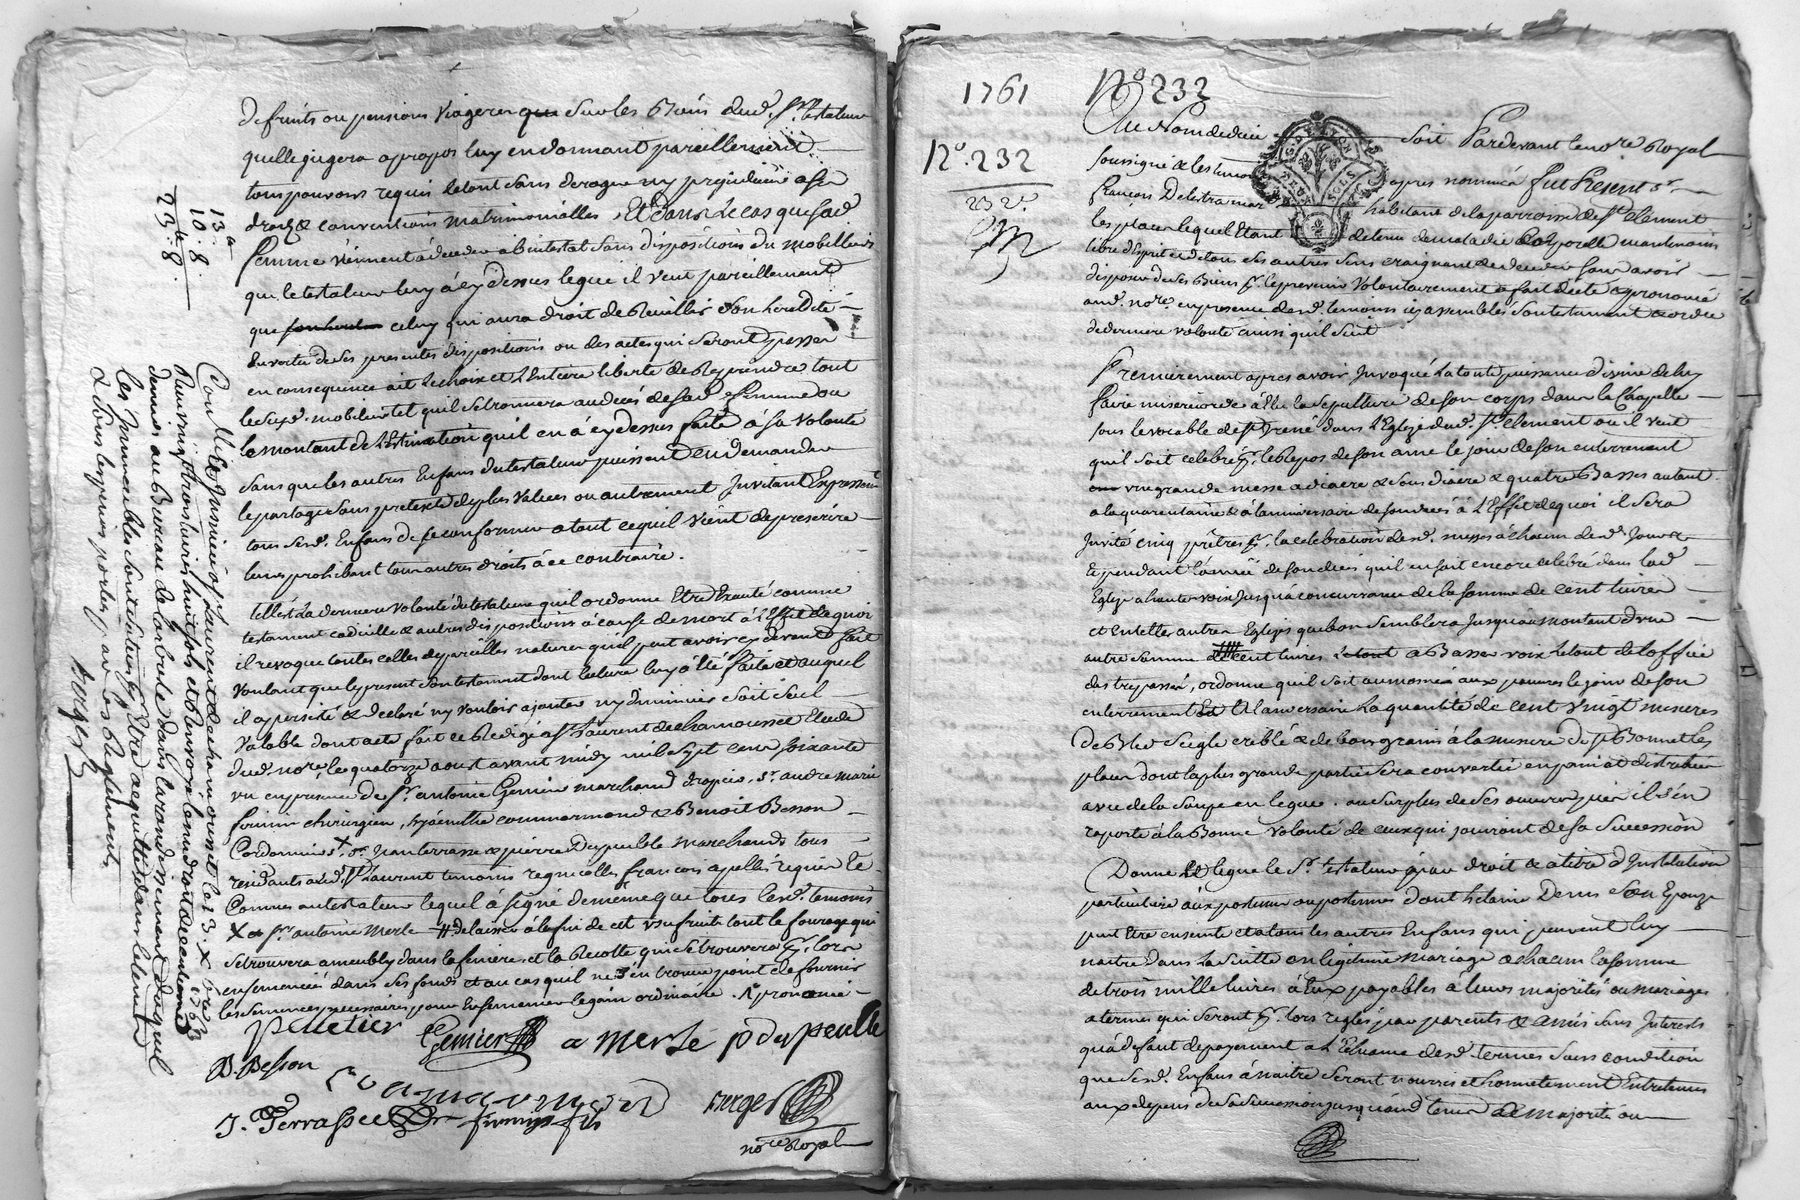 de fruits ou pensions viageres que sur les Biens dud. Sr. testateur
quelle jugera apropos luy en donnant pareillement
tous pouvoirs requis le tout sans deroger ny prejudicier a ses
droits & conventions matrimonialles, Et dans le cas que sad.
femme viennent à deceder ab intestat sans dispositions du mobilliers
que le testateur luy à cy dessus legué il veut pareillement
que celuy qui aura droit de Reuillir son heredité
en vertu de ses presentes dispositions ou des actes qui seront passer
en consequence ait le choix et l'Entiere liberté de Reprendre tout
le susd. mobilier tel quil se trouvera au deces de sad. femme ou
le montant de l'Estimation quil en à cy dessus faite à sa volonté
sans que les autres Enfans du testateur puissent en demander
le partage sous pretexte de plus valües ou autrement Invitant Expressem
tous sesd. Enfans de se conformer a tout ce quil vient de prescrire
leurs prohibant tous autres droits à ce contraire.
telle est La derniere volonté du testateur quil ordonne Etre Executé comme
testament codicille & autres dispositions à cause de mort à l'Effet de quoi
il revoque toutes celles de pareilles natures quil peut avoir cy devant fait
voulant que le present son testament dont lecture luy a été faite et auquel
il a persisté & declaré ny vouloir ajouter ny diminuer soit seul
valable dont acte fait et Redigé a St. Laurent de chamousset Etude
dud. nore. le quatorze aoust avant midy mil sept cent soixante
un en presence de Sr. antoine Gemier marchand drapier, Sr. andre marie
fournir chirurgien, hyacinthe commarmond & Benoit Besson
Cordonniers, Sr. Jean terrasse & pierre Dupeuble marchands tous
residants aud. St Laurent temoins requis
Connus au testateur lequel à signé de même que tous lesd. temoins
X & Sr. antoine Merle # delaisser à la fin de cet usufruit tout le fourage qui
se trouvera ameubly dans la feniere et la Recolte qui se trouvera pr. lors
ensemencée dans ses fonds et au cas quil ne sen trouve point de fournir
les semences necessaires pour Ensemencer le grain ordinaire. Approuvé
pelletier Gemier a merle p dupeuble
B. Besson
Commarmond
J. Terrasse fournier fils
surger
nore Royal
13 a
10 : 8
23 : 8
Con.llé & Insinué a St Laurent de chamousset le 13. xbre 1763
Reçu vingt trois livres huit sols et Renvoyé le droit de centieme
denier au Bureau de larbresle dans larondissement duquel
les Immeubles sont situés pr. Etre acquittés dans le tems
& sous les peines portés par les Reglements
surger
1761 No 232
No. 232
232
Au Nom de dieu soit Pardevant le nore Royal
soussigné & les temoins apres nommés fut Present Sr.
françois Delestra mard habitant de la parroisse de St. clement
les places lequel Etant detenu de maladie Corporelle maintmoins
libre d'Esprit et de tous ses autres sens craignant de deceder sans avoir
disposer de ses Biens pr. le prevenir volontairement a fait dicté & prononcé
aud. nore. en presence desd. temoins icy assemblés son testament & ordre
de derniere volonté ainsi quil suit
Premierement apres avoir Invoqué La toute puissance divine de luy
faire misericorde à Elu la sepulture de son corps dans la Chapelle
sous le vocable de St Irené dans l'Eglize dud. St. clement ou il veut
quil soit celebré pr. le Repos de son ame le jour de son enterrement
une grande messe a diacre & sous diacre & quatre Basses autant
a la quarantaine & à lanniversaire de son deces à l'Effet de quoi il sera
Invité cinq prêtres pr. la celebration desd. messes à chacun desd. Jours
Et pendant l'année de son deces quil en soit encore celebré dans lad.
Eglise a haute voix jusqu'a concurrance de la somme de cent livres
et en telles autres Eglises que bon semblera jusqu'au montant d'une
autre somme de cent livres a Basse voix le tout de l'office
des trepassés, ordonne quil soit aumosnés aux pauvres le jour de son
enterrement Et a l'anniversaire La quantité de cent vingt mesures
de Bled seigle criblé & de bon grain à la mesure de St Bonnet les
places dont la plus grande partie sera convertie en pain et distribuée
avec de la soupe en legue. au surplus de ses œuvres pies il s'en
raporte à la Bonne volonté de ceux qui jouiront de sa succession
Donne et legue le Sr. testateur par droit & a titre d'Institution
particuliere aux posthume ou posthumes dont helaine Denis son Epouze
peut Etre enceinte et a tous les autres Enfans qui peuvent luy
naitre dans la suitte en legitime mariage a chacun la somme
de trois mille livres à Eux payables à leurs majorités ou mariages
a termes qui seront pr. lors reglés par parents & amis sans Interêts
qu'à defaut de payement à l'Echeance desd. termes sous condition
que sesd. Enfans à naitre seront nourris et honnetement Entretenus
aux depens de sa succession jusqu'aud. tems de majorité ou